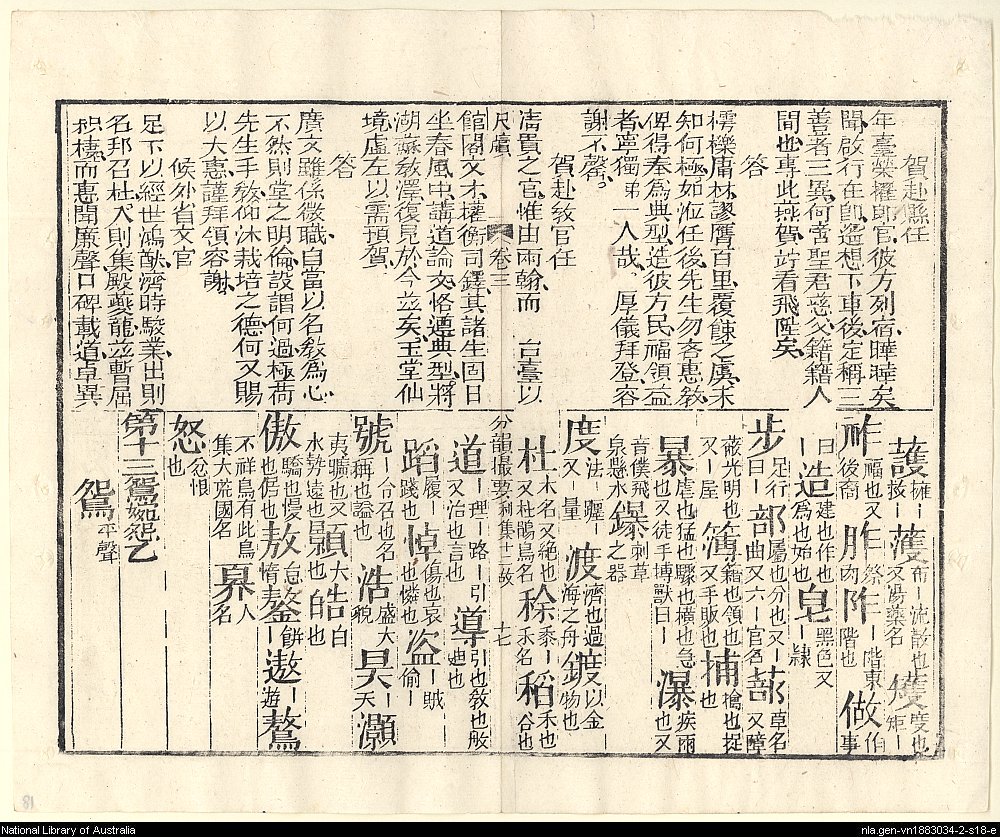 賀赴縣任
年臺榮擢郎官彼方列宿暐暐矣
聞啟行在即遙想下車後定稱三
善者三異何啻聖君慈父籍籍人
間也專此燕賀竚看飛陞矣
答
樗櫟庸材謬膺百里覆餗之虞未
知何極如涖任後先生勿吝惠教
俾得奉為典型造彼方民福領益
者寧獨弟一人哉厚儀拜登容
謝不罄
賀赴教官任
清貴之官惟由南翰而 台臺以
尺牘 卷三
館閣文木權衡司鐸其諸生固日
坐春風中講道論文恪遵典型將
湖蘇教澤復見於今茲矣玉堂仙
境虛左以需預賀
答
廣文雖係微職自當以名教為心
不然則堂之明倫設謂何過極荷
先生手教仰沐栽培之德何又賜
以大惠謹拜領容謝
候外省文官
足下以經世鴻猷濟時駿業出則
名邦召杜入則集殿夔龍茲暫屈
枳棲而惠聞廉聲口碑載道卓異
護擁-救-頀布-流散也又湯藥名 度也矩-
祚福也又後裔 胙祭-肉 阼-階東階也 做作事
曰-造建也作也為也始也 皂黑色又-隸
步足行曰- 部屬也分也又-曲又六-官名 蔀草名又障
蔽光明也又-屋 簿籍也領也又手版也 捕擒也捉也
暴虐也猛也驟也橫也急也又徒手搏獸曰- 瀑疾雨也又
音僕飛泉懸水 鑤刺草之器
度法-躔-又-量 渡濟也過海之舟 鍍以金物也
杜木名又絕也又杜鵑鳥名 稌黍-禾名 稻禾也谷也
分韻撮要利集十二故 十七
道-理-路-引又治也言也 導引也教也啟迪也
蹈履-踐也 悼傷也哀也憐也 盜-賊偷-
號-令召也名稱也謚也 浩盛大貌 昊-天 灝
夷曠也又水勢遠也 顥大也 皓白也
傲驕也慢也倨也 敖怠敖惰 鏊餅- 遨-遊 鰲
不祥鳥有此鳥集大荒國名 奡人名
怒忿恨也
第十三鴛婉怨乙
鴛平聲
81
National Library of Australia
nla.gen-vn1883034-2-s18-e